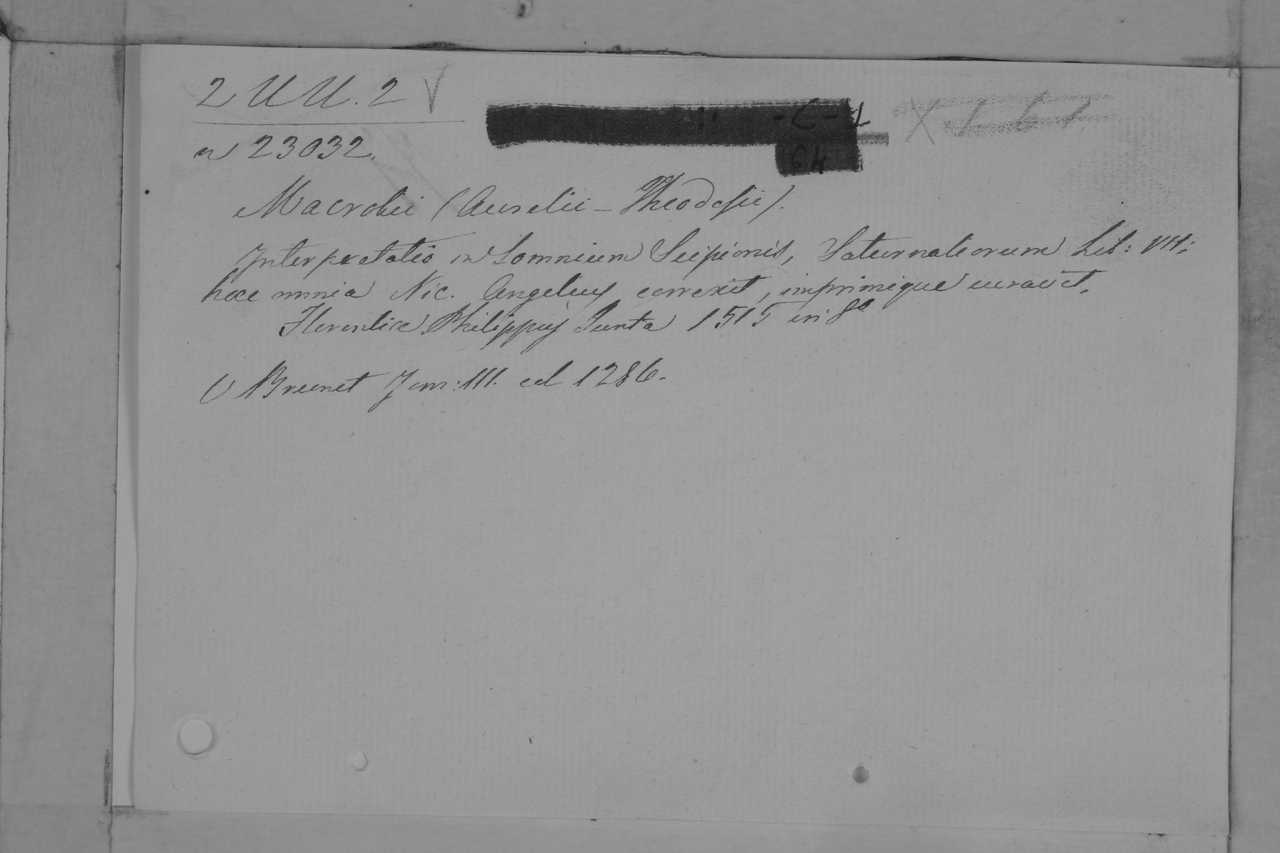 2 UU. 2 V
n 23032.
Macrobii (Aurelii - Theodosii).
Interpretatio in Somnium Scipionis, Saturnaliorum Lib: VII:
hæc omnia Nic. Angelius correxit, imprimique curavit.
Florentiæ Philippus Junta 1515 in 8º
V Brunet Tom: III. col 1286.